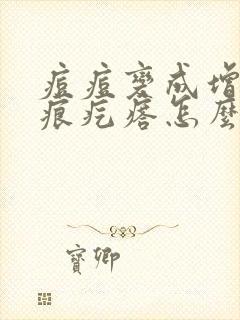 痘痘變成增
痕疙瘩怎麼
寶卿